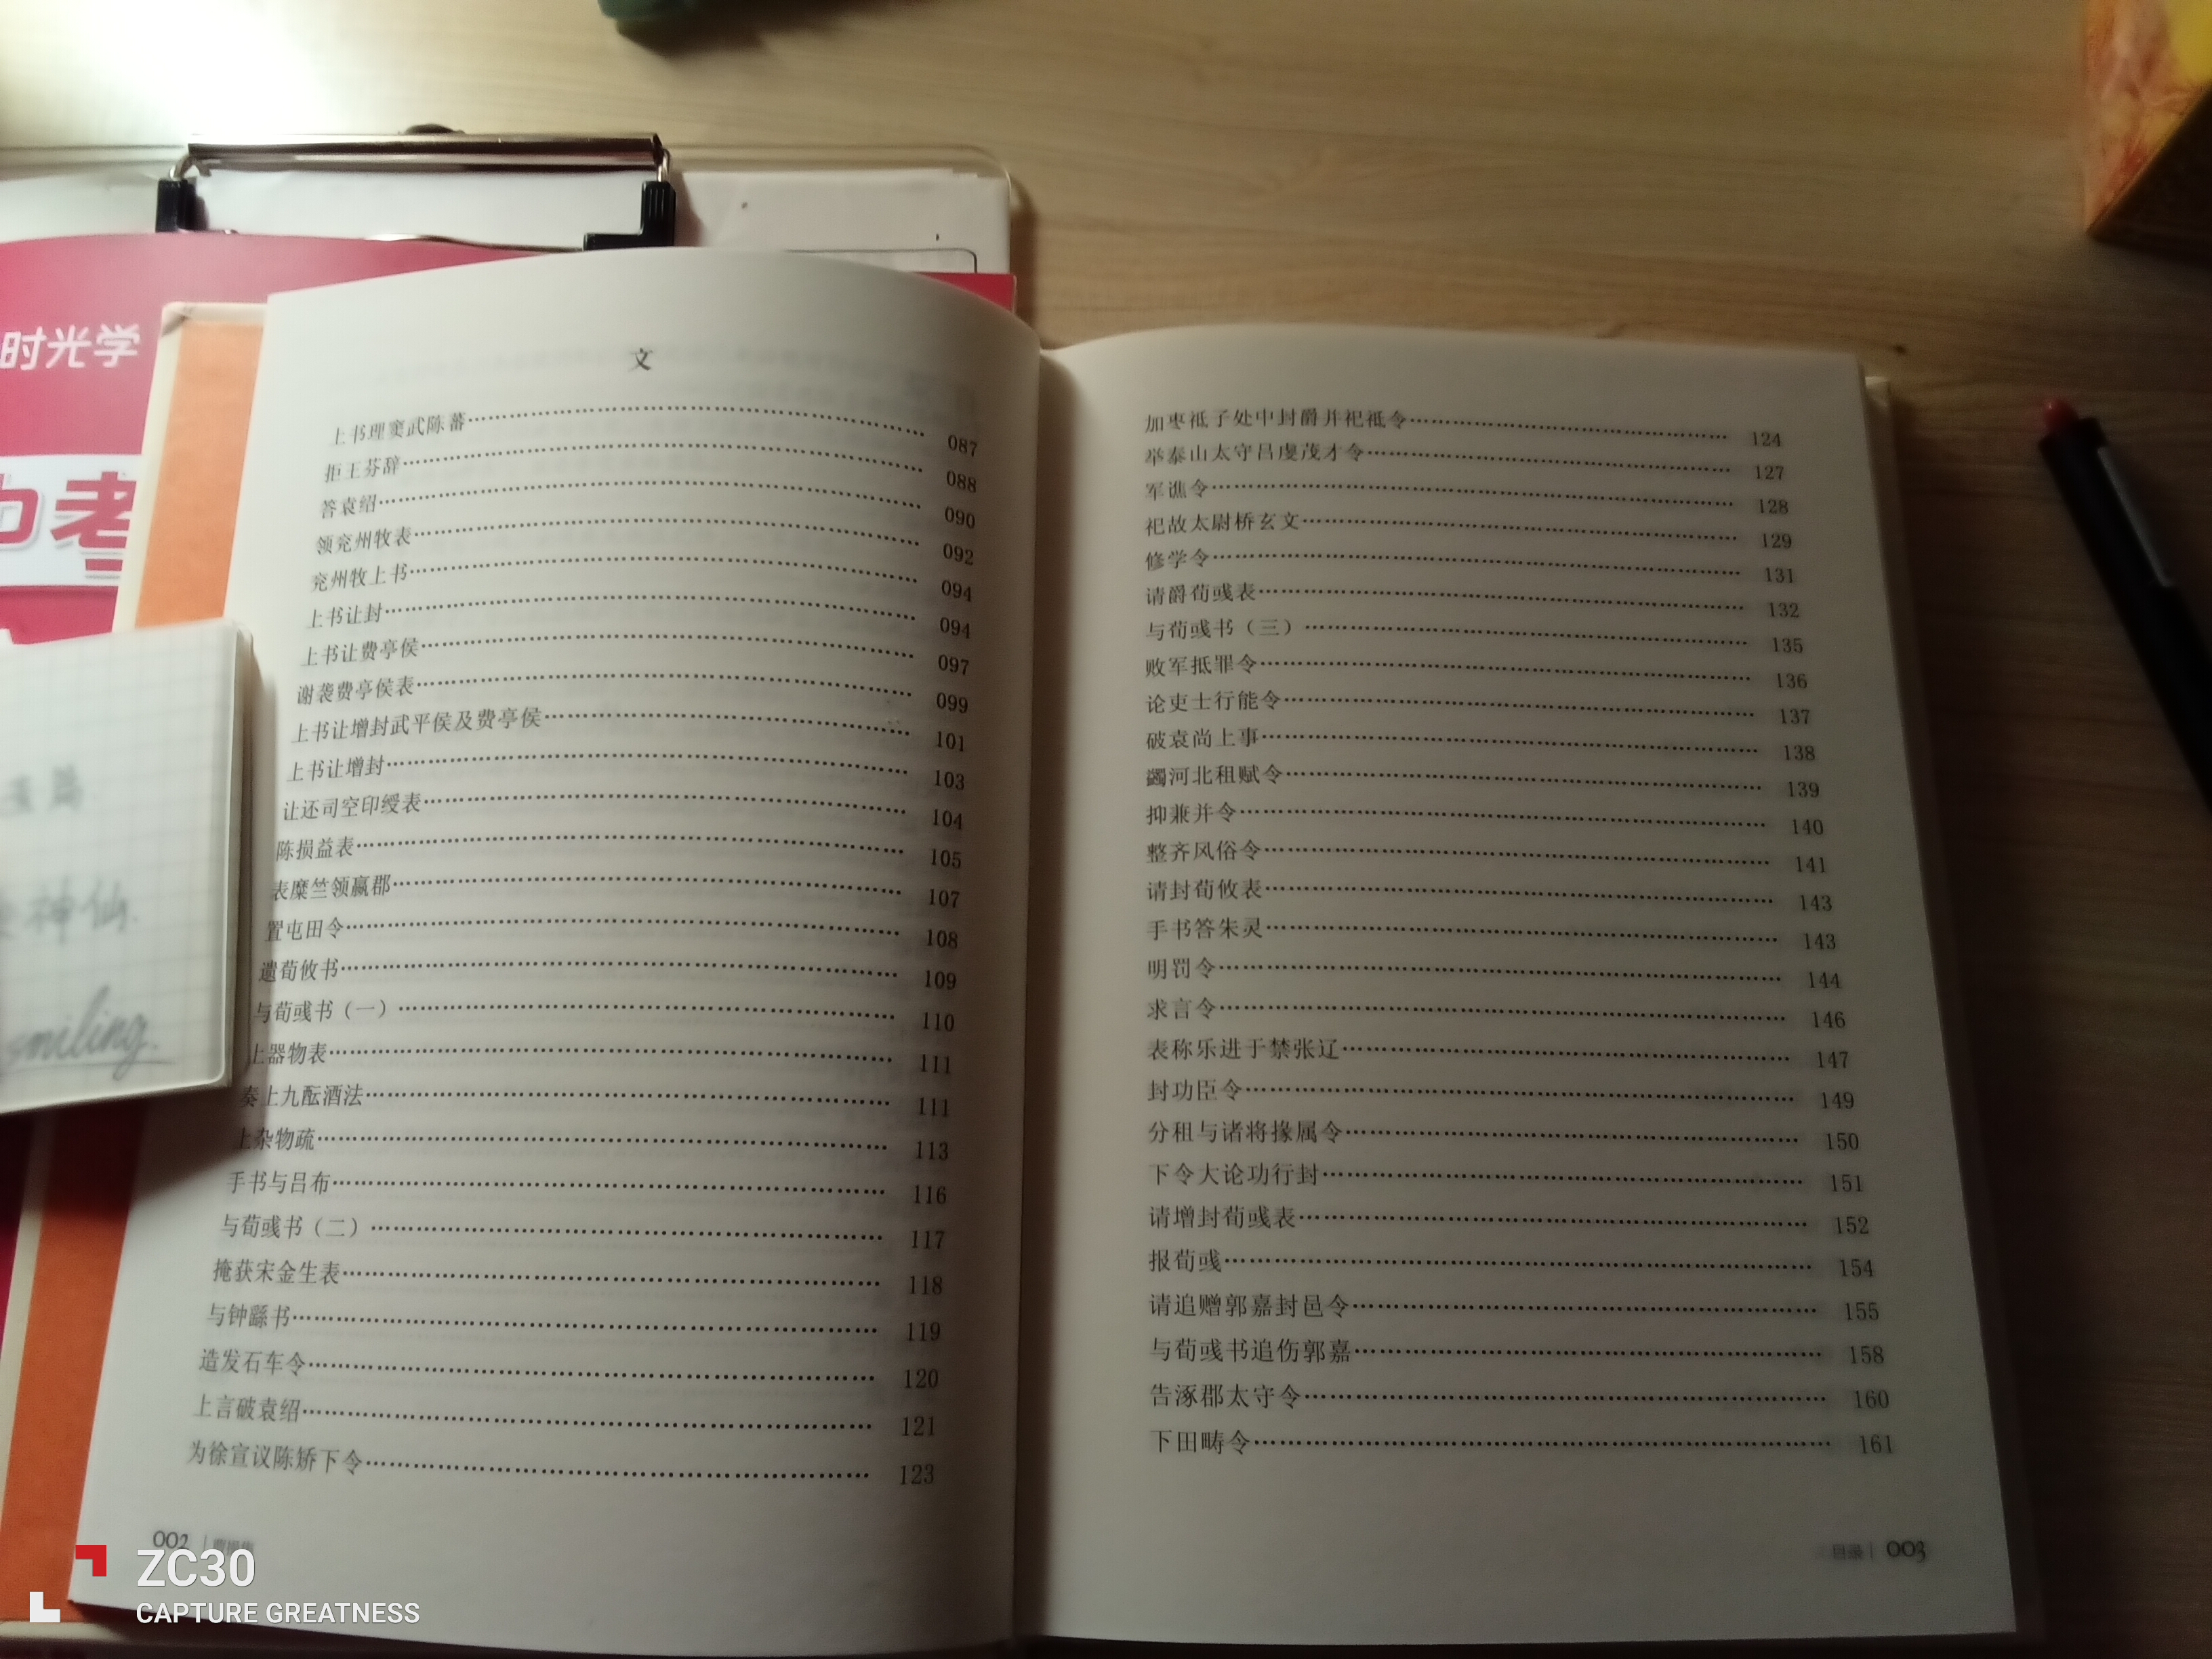 时光学
中考
神仙.
smiling.
文
上书理窦武陈蕃 087
拒王芬辞 088
答袁绍 090
领兖州牧表 092
兖州牧上书 094
上书让封 094
上书让费亭侯 097
谢袭费亭侯表 099
上书让增封武平侯及费亭侯 101
上书让增封 103
让还司空印绶表 104
陈损益表 105
表糜竺领嬴郡 107
置屯田令 108
遗荀攸书 109
与荀彧书（一） 110
上器物表 111
奏上九酝酒法 111
上杂物疏 113
手书与吕布 116
与荀彧书（二） 117
掩获宋金生表 118
与钟繇书 119
造发石车令 120
上言破袁绍 121
为徐宣议陈矫下令 123
002
加枣祗子处中封爵并祀祗令 124
举泰山太守吕虔茂才令 127
军谯令 128
祀故太尉桥玄文 129
修学令 131
请爵荀彧表 132
与荀彧书（三） 135
败军抵罪令 136
论吏士行能令 137
破袁尚上事 138
蠲河北租赋令 139
抑兼并令 140
整齐风俗令 141
请封荀攸表 143
手书答朱灵 143
明罚令 144
求言令 146
表称乐进于禁张辽 147
封功臣令 149
分租与诸将掾属令 150
下令大论功行封 151
请增封荀彧表 152
报荀彧 154
请追赠郭嘉封邑令 155
与荀彧书追伤郭嘉 158
告涿郡太守令 160
下田畴令 161
目录 003
ZC30
CAPTURE GREATNESS